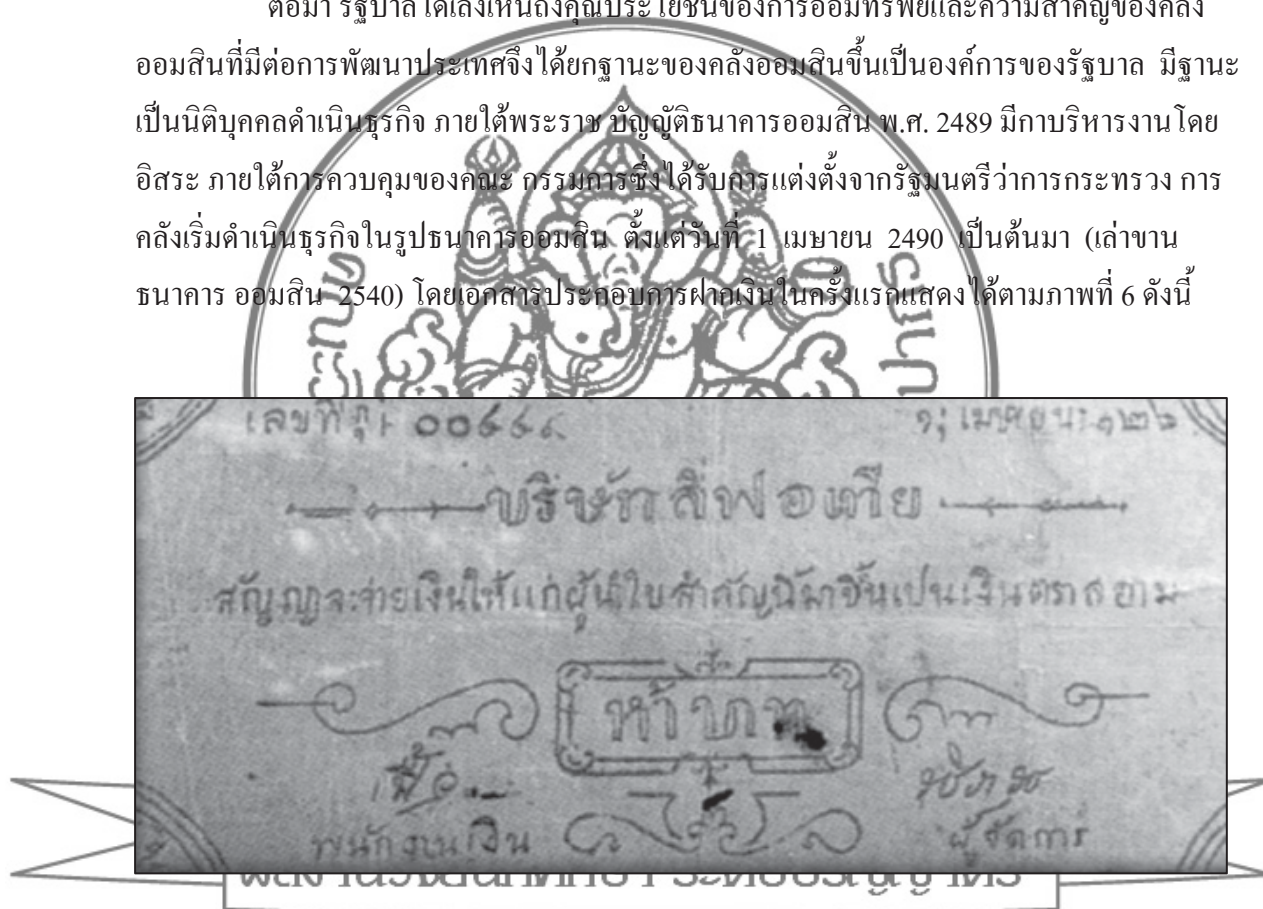 ต่อมา รัฐบาลได้เล็งเห็นถึงคุณประโยชน์ของการออมทรัพย์และความสำคัญของคลัง
ออมสินที่มีต่อการพัฒนาประเทศจึงได้ยกฐานะของคลังออมสินขึ้นเป็นองค์การของรัฐบาล มีฐานะ
เป็นนิติบุคคลดำเนินธุรกิจ ภายใต้พระราช บัญญัติธนาคารออมสิน พ.ศ. 2489 มีกาบริหารงานโดย
อิสระ ภายใต้การควบคุมของคณะ กรรมการซึ่งได้รับการแต่งตั้งจากรัฐมนตรีว่าการกระทรวง การ
คลังเริ่มดำเนินธุรกิจในรูปธนาคารออมสิน ตั้งแต่วันที่ 1 เมษายน 2490 เป็นต้นมา (เล่าขาน
ธนาคาร ออมสิน 2540) โดยเอกสารประกอบการฝากเงินในครั้งแรกแสดงได้ตามภาพที่ 6 ดังนี้
เลขที่
บริษัทลีฟอเทีย
สัญญาจะจ่ายเงินให้แก่ผู้นำใบสำคัญนี้มาขึ้นเป็นเงินตราสยาม
ห้าบาท
พนักงานเงิน ผู้จัดการ
ผลงานวิจัยนักศึกษา ระดับปริญญาตรี